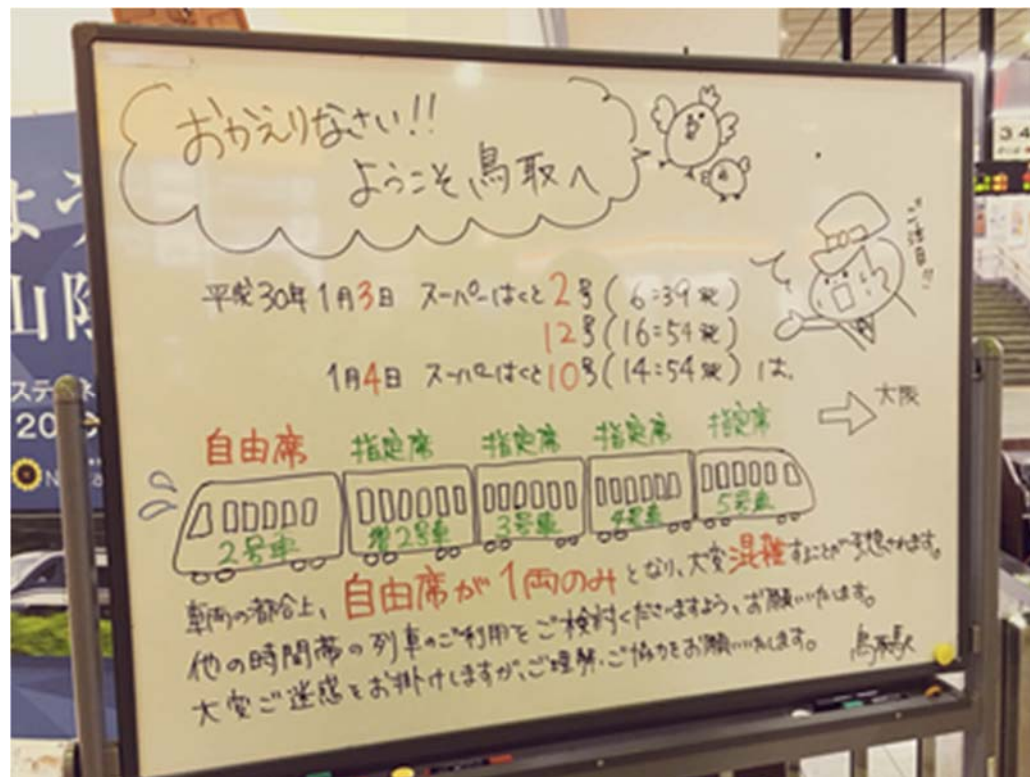 おかえりなさい!!
ようこそ鳥取へ
ご注目!!
平成30年1月3日 スーパーはくと2号(6:39発)
12号(16:54発)
1月4日 スーパーはくと10号(14:54発)は、
大阪
自由席 指定席 指定席 指定席 指定席
2号車 増2号車 3号車 4号車 5号車
車両の都合上、自由席が1両のみとなり、大変混雑することが予想されます。
他の時間帯の列車のご利用をご検討くださいますよう、お願いいたします。
大変ご迷惑をお掛けしますが、ご理解・ご協力をお願いいたします。
鳥取駅
山陰
20
3.4